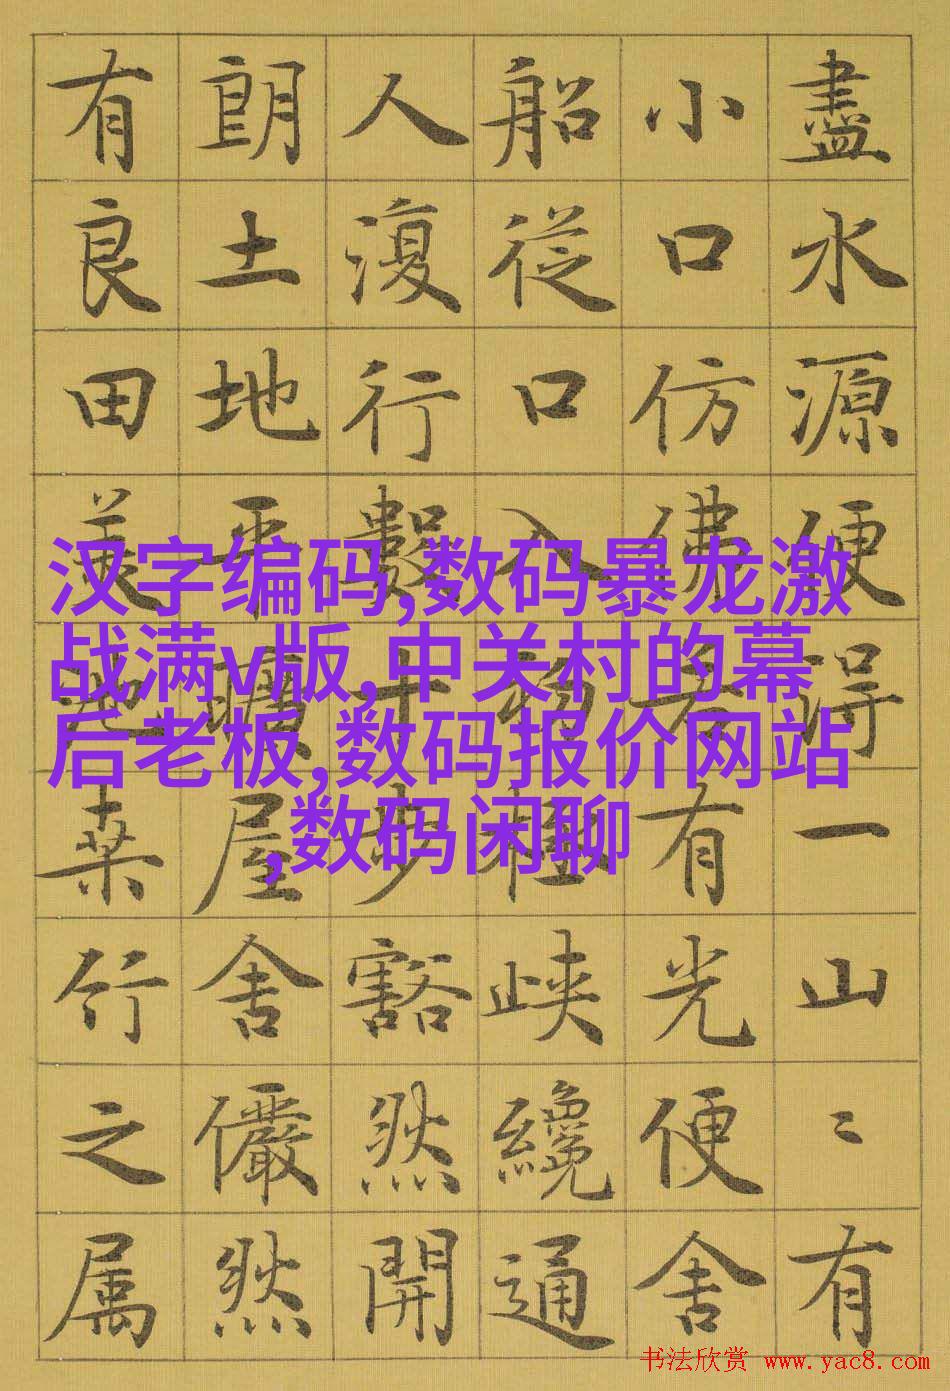 盡水源便得一山〻有
小口仿佛若有光便舍
船從口入初極峽纔通
人復行數十步豁然開
朗土地平曠屋舍儼然
有良田美池桑竹之属
汉字编码,数码暴龙激
战满v版,中关村的幕
后老板,数码报价网站
,数码闲聊
书法欣赏 www.yac8.com